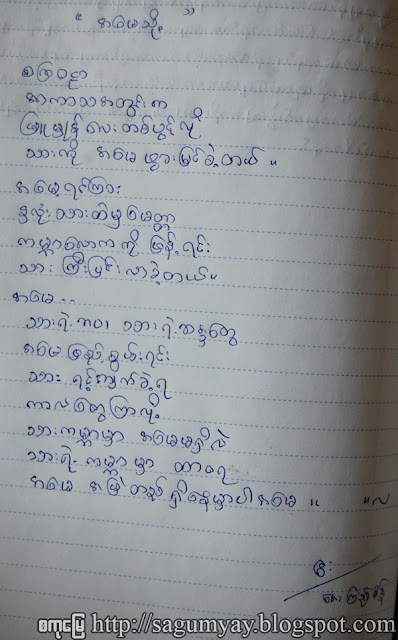 “ အမေသို့ ”
စကြဝဠာ
အာကာသအတွင်းက
ဖြူ လေးတစ်ပွင့်လို
သားကို အမေ မွေးဖွားခဲ့တယ် ။
အမေ့ရင်ကြား
နှလုံးသားထဲမှ မေတ္တာ
ကမ္ဘာလောကကို ဖြန့်ရင်း
သား ကြီးပြင်းလာခဲ့တယ်။
အမေ - -
သားရဲ့ဘဝ၊ သားရဲ့ဆန္ဒတွေ
အမေဖြည့်စွမ်းရင်း
သား ရင့်ကျက်ခဲ့ရ
ကာလတွေကြာလို့
သားကမ္ဘာမှာ အမေမရှိလဲ
သားရဲ့ ကမ္ဘာမှာ ထာဝရ
အမေ အမြဲတည်ရှိနေမှာပါအမေ ။ ။
စကုမြေ http://sagumyay.blogspot.com